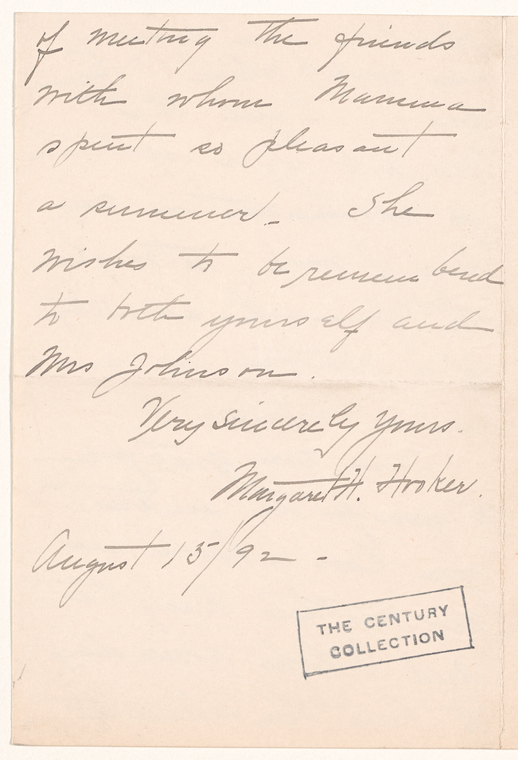 of meeting the friends
with whom Mamma
spent so pleasant
a summer. She
wishes to be remembered
to both yourself and
Mrs Johnson.
Very sincerely yours.
Margaret H. Hooker.
August 15/92 -
THE CENTURY
COLLECTION